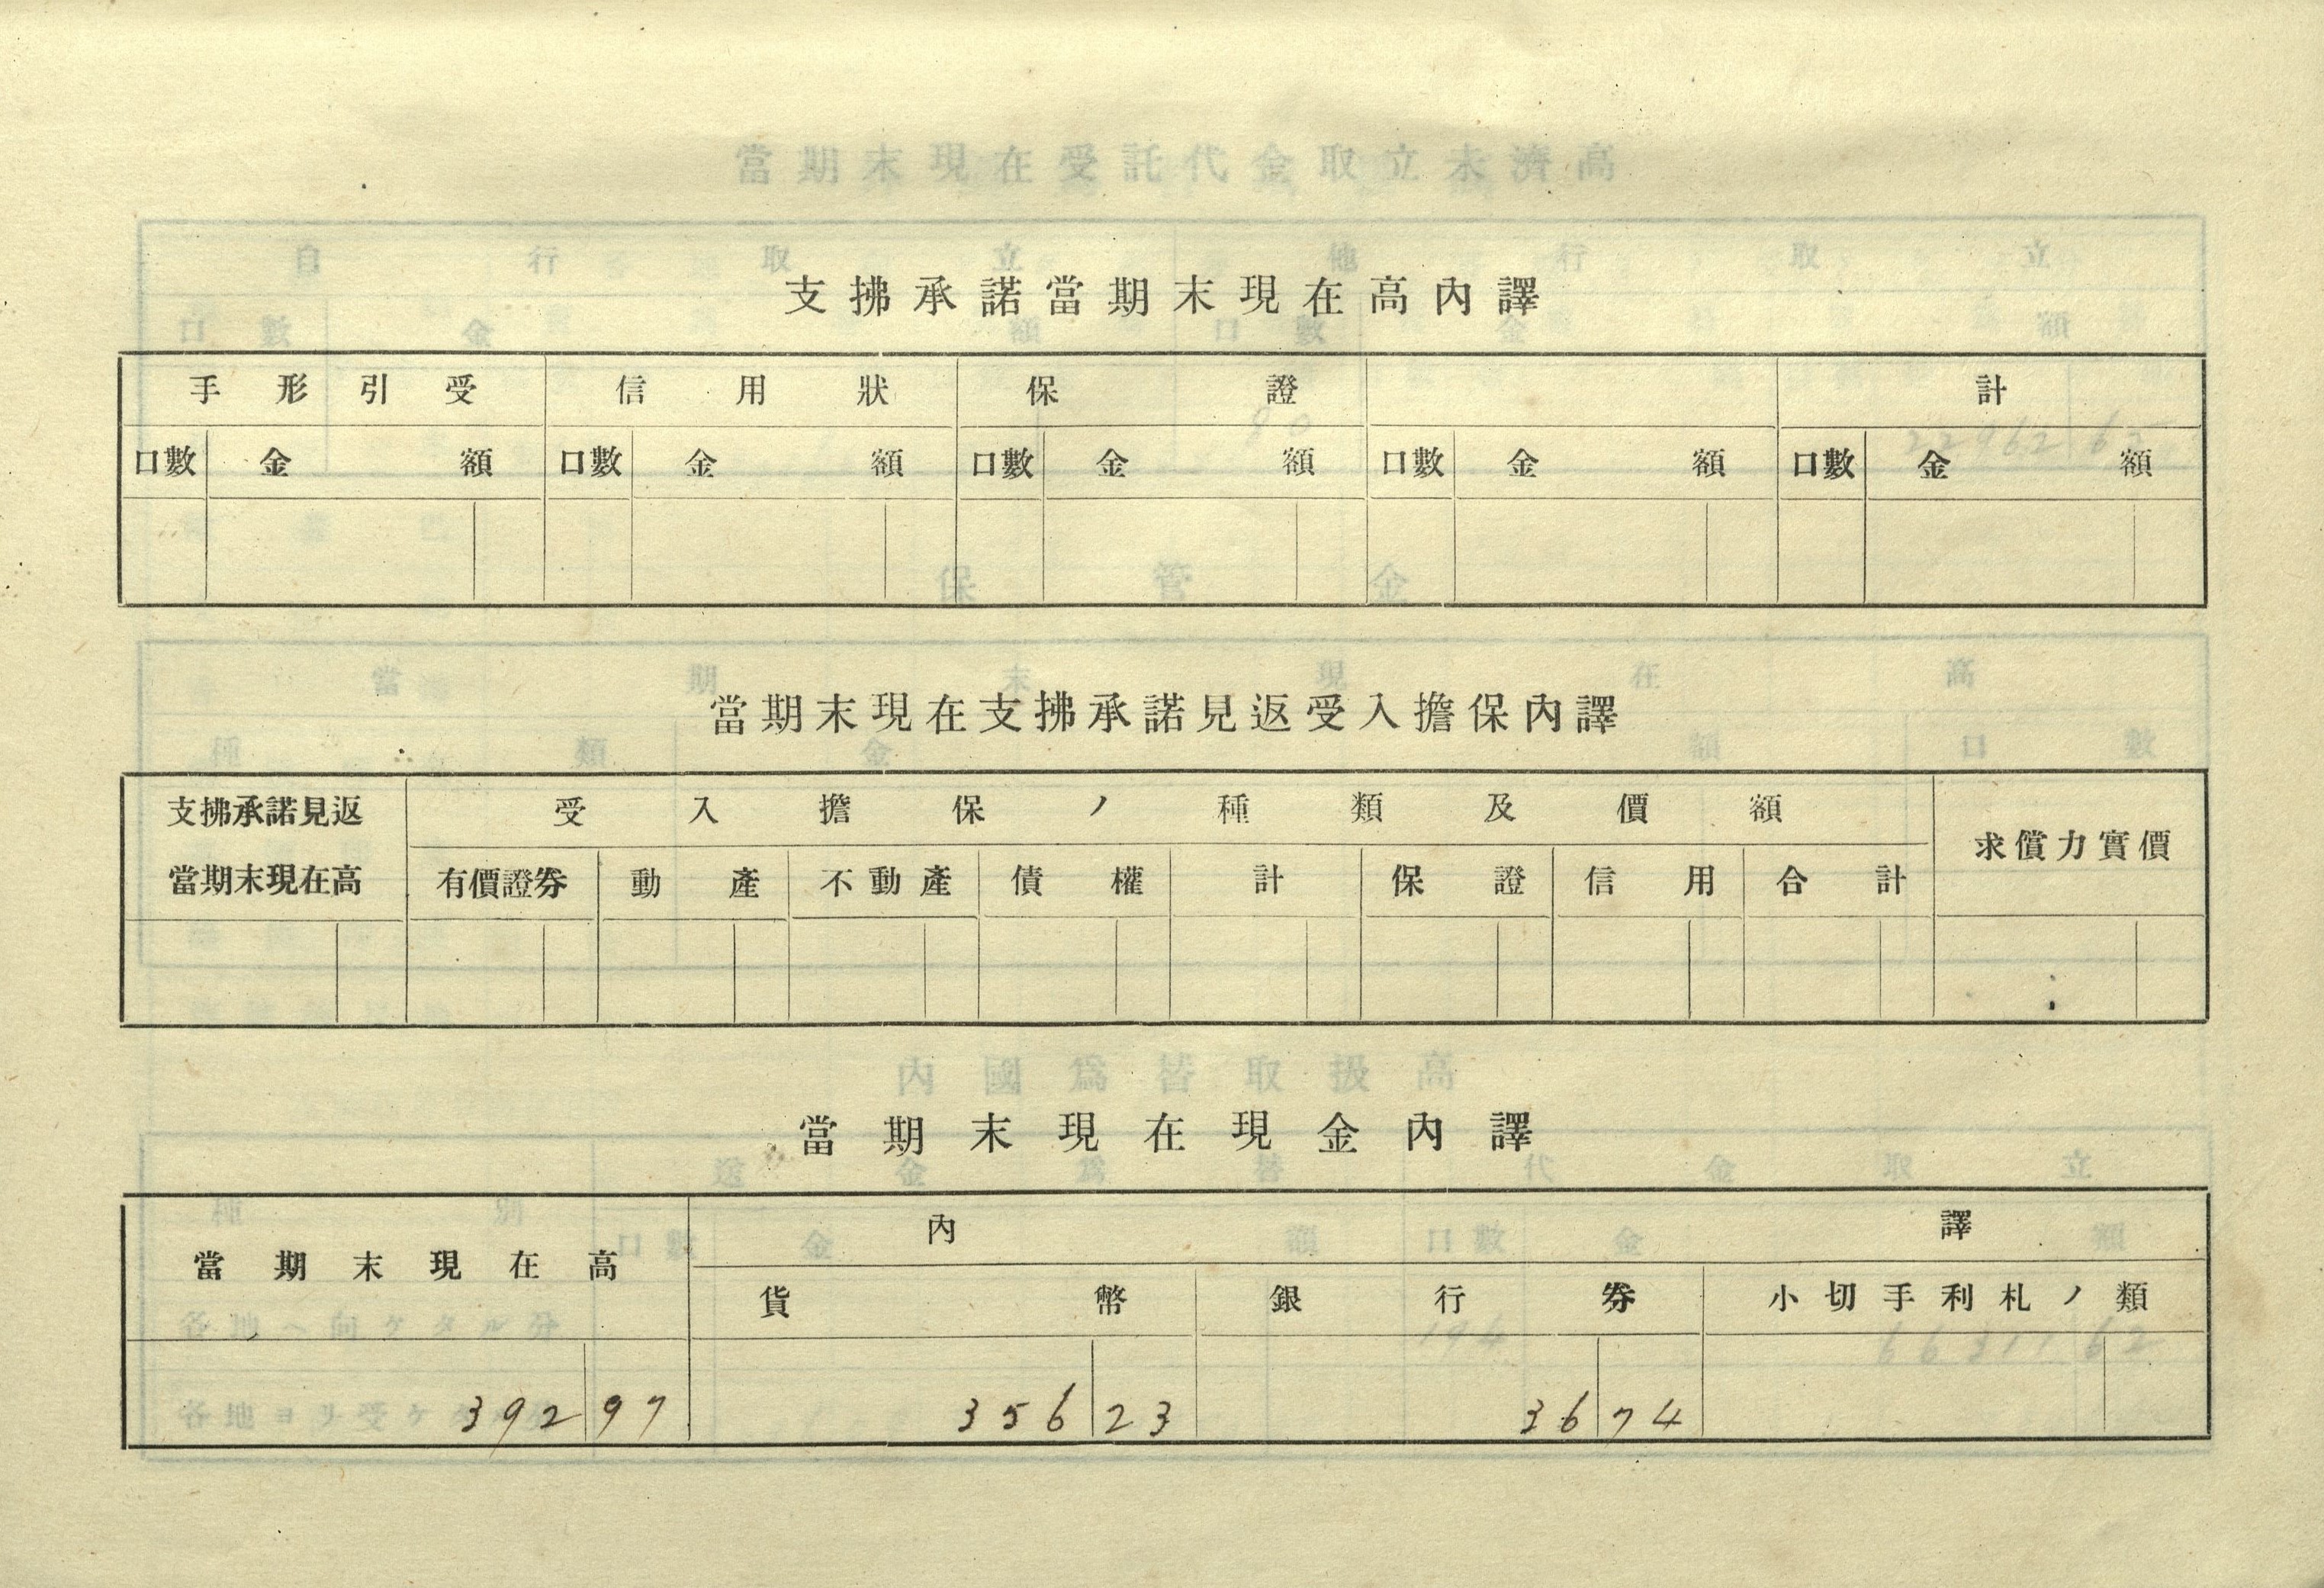 支拂承諾當期末現在高內譯
手形引受 信用狀 保證 計
口數 金額 口數 金額 口數 金額 口數 金額 口數 金額
當期末現在支拂承諾見返受入擔保內譯
支拂承諾見返 受入擔保ノ種類及價額
求償力實價
當期末現在高 有價證券 動產 不動產 債權 計 保證 信用 合計
當期末現在現金內譯
內譯
當期末現在高
貨幣 銀行券 小切手利札ノ類
392 97 356 23 36 74